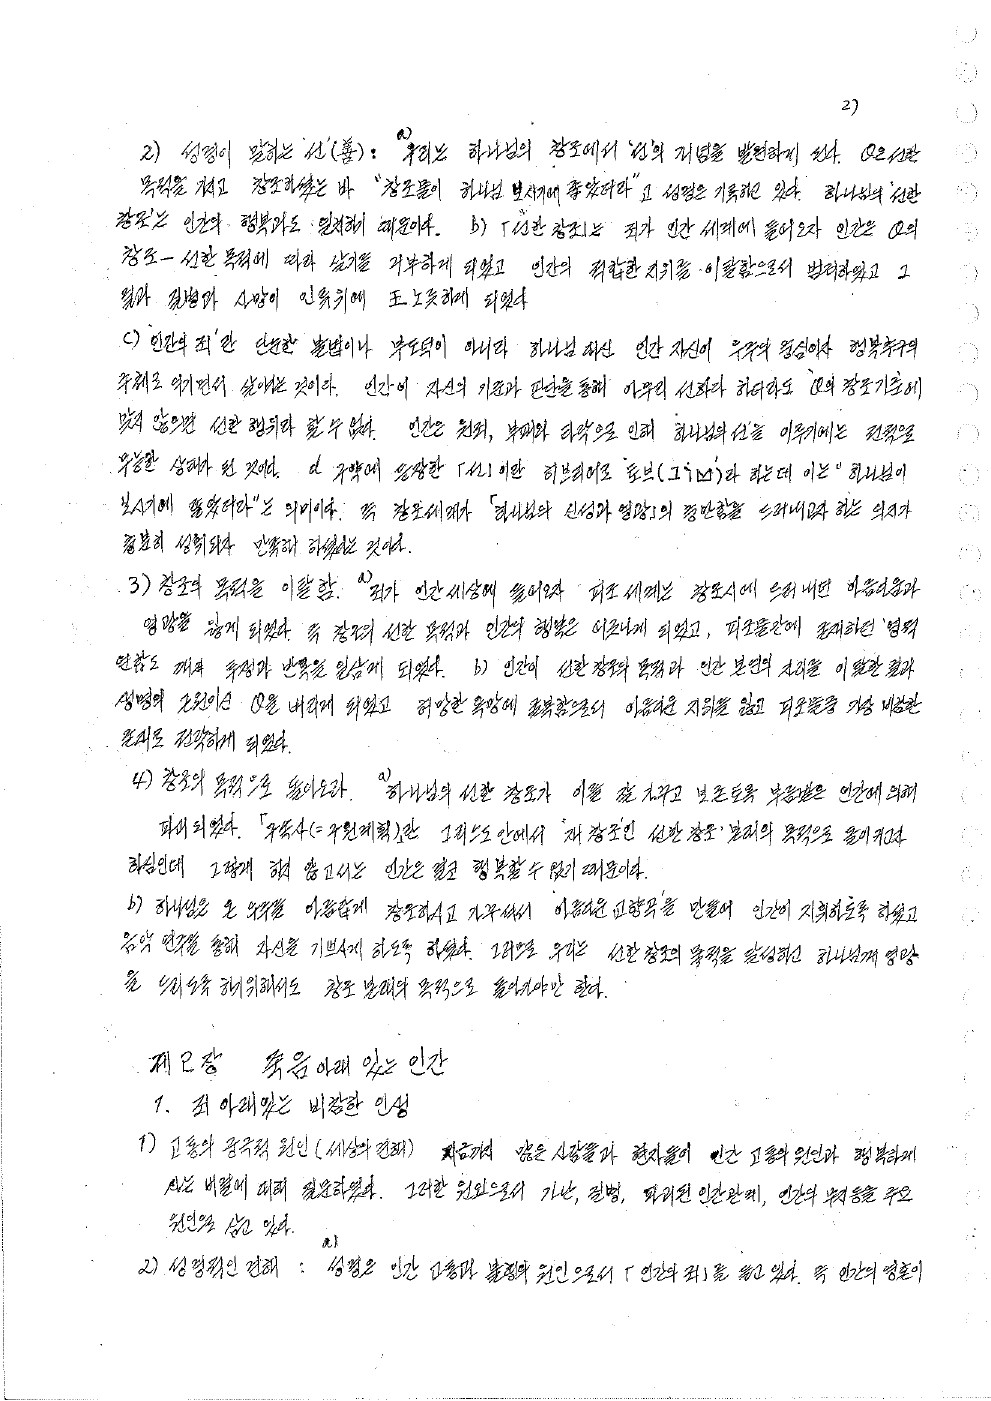 2)
2) 성경이 말하는 '선'(善): a) 우리는 하나님의 창조에서 '선'의 개념을 발견하게 된다. Q은 선한
목적을 갖고 창조하셨는 바 "창조물이 하나님 보시기에 좋았더라"고 성경은 기록하고 있다. 하나님의 '선한
창조'는 인간의 행복과도 일치하기 때문이다. b)「선한 창조」는 죄가 인간 세계에 들어오자 인간은 Q의
창조-선한 목적에 따라 살기를 거부하게 되었고 인간의 적합한 지위를 이탈함으로서 범죄하였고 그
결과 질병과 사망이 인류위에 王노릇하게 되었다
c) '인간의 죄'란 단순한 불법이나 부도덕이 아니라 하나님 대신 인간 자신이 우주의 중심이자 행복추구의
주체로 여기면서 살아가는 것이다. 인간이 자신의 기준과 판단을 통해 아무리 선하다 하더라도 Q의 창조기준에
맞지 않으면 선한 행위라 할 수 없다. 인간은 원죄, 부패와 타락으로 인해 '하나님의 선'을 이루기에는 전적으로
무능한 상태가 된 것이다. d 구약에 등장한「선」이란 히브리어로 '토브'(טוב)라 하는데 이는 "하나님이
보시기에 좋았더라"는 의미이다. 즉 창조세계가 「하나님의 신성과 영광」의 충만함을 드러내고자 하는 의지가
충분히 성취되자 만족해 하셨다는 것이다.
3) 창조의 목적을 이탈함. a) 죄가 인간세상에 들어오자 피조 세계는 창조시에 드러내던 아름다움과
영광을 잃게 되었다. 즉 창조의 선한 목적과 인간의 행복은 어긋나게 되었고, 피조물간에 존재하던 '영적
연합도 깨져 투쟁과 반목을 일삼게 되었다. b) 인간이 선한 창조의 목적과 인간 본연의 자리를 이탈한 결과
생명의 근원이신 Q을 버리게 되었고 허망한 욕망에 굴복함으로서 아름다운 지위를 잃고 피조물중 가장 비참한
존재로 전락하게 되었다.
4) 창조의 목적으로 돌아오라. a) 하나님의 선한 창조가 이를 잘 가꾸고 보존토록 부름받은 인간에 의해
파괴되었다. 「구속사(=구원계획)」란 그리스도 안에서 '재 창조'인 선한 창조' 본래의 목적으로 돌이키고자
하심인데 그렇게 하지 않고서는 인간은 결코 행복할 수 없기 때문이다.
b) 하나님은 온 우주를 아름답게 창조하시고 가꾸셔서 '아름다운 교향곡'을 만들어 인간이 지휘하도록 하셨고
음악 연주를 통해 자신을 기쁘시게 하도록 하셨다. 그러므로 우리는 선한 창조의 목적을 달성하고 하나님께 영광
을 드리도록 하기위해서도 창조 본래의 목적으로 돌아가야만 한다.
제 2 장 죽음 아래 있는 인간
1. 죄 아래있는 비참한 인생
1) 고통의 궁극적 원인(세상의 견해) 지금까지 많은 사람들과 현자들이 인간 고통의 원인과 행복하게
사는 비결에 대해 질문하였다. 그러한 원외으로서 가난, 질병, 파괴된 인간관계, 인간의 무지등을 주요
원인으로 삼고 있다.
2) 성경적인 견해 : a) 성경은 인간 고통과 불행의 원인으로서 「인간의 죄」를 들고 있다. 즉 인간의 영혼이